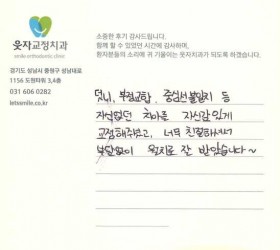 웃자교정치과
smile orthodontic clinic
경기도 성남시 중원구 성남대로
1156 도원타워 3,4층
031 606 0282
letssmile.co.kr
소중한 후기 감사드립니다.
함께 할 수 있었던 시간에 감사하며,
환자분들의 소리에 귀 기울이는 웃자치과가 되도록 하겠습니다.
덧니, 부정교합, 중심선불일치 등
자신없던 치아를 자신감있게
교정해주셨고, 너무 친절하셔서
부담없이 월치료 잘 받았습니다~